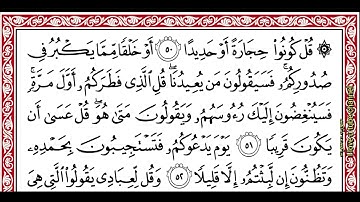 ۞ قُلْ كُونُوا۟ حِجَارَةً أَوْ حَدِيدًا ٥٠ أَوْ خَلْقًا مِّمَّا يَكْبُرُ فِى
صُدُورِكُمْ ۚ فَسَيَقُولُونَ مَن يُعِيدُنَا ۖ قُلِ ٱلَّذِى فَطَرَكُمْ أَوَّلَ مَرَّةٍ ۚ
فَسَيُنْغِضُونَ إِلَيْكَ رُءُوسَهُمْ وَيَقُولُونَ مَتَىٰ هُوَ ۖ قُلْ عَسَىٰٓ أَن
يَكُونَ قَرِيبًا ٥١ يَوْمَ يَدْعُوكُمْ فَتَسْتَجِيبُونَ بِحَمْدِهِۦ
وَتَظُنُّونَ إِن لَّبِثْتُمْ إِلَّا قَلِيلًا ٥٢ وَقُل لِّعِبَادِى يَقُولُوا۟ ٱلَّتِى هِىَ